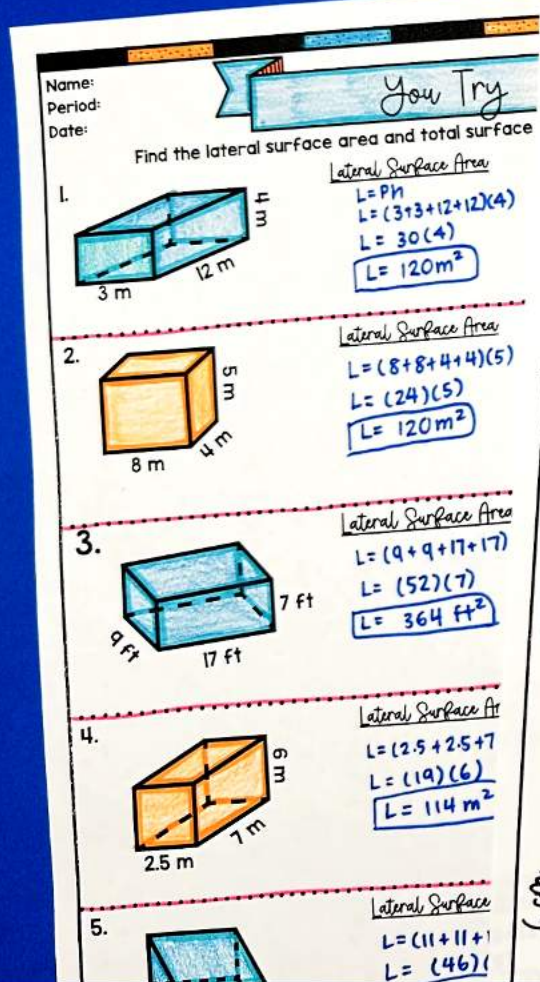 Name:
Period:
Date:
You Try
Find the lateral surface area and total surface
1.
4 m
12 m
3 m
Lateral Surface Area
L=Ph
L=(3+3+12+12)(4)
L= 30(4)
L= 120m²
2.
5 m
4 m
8 m
Lateral Surface Area
L=(8+8+4+4)(5)
L= (24)(5)
L= 120m²
3.
7 ft
9 ft
17 ft
Lateral Surface Area
L=(9+9+17+17)
L= (52)(7)
L= 364 ft²
4.
6 m
7 m
2.5 m
Lateral Surface Ar
L=(2.5+2.5+7
L=(19)(6)
L= 114 m²
5.
Lateral Surface
L=(11+11+
L= (46)(